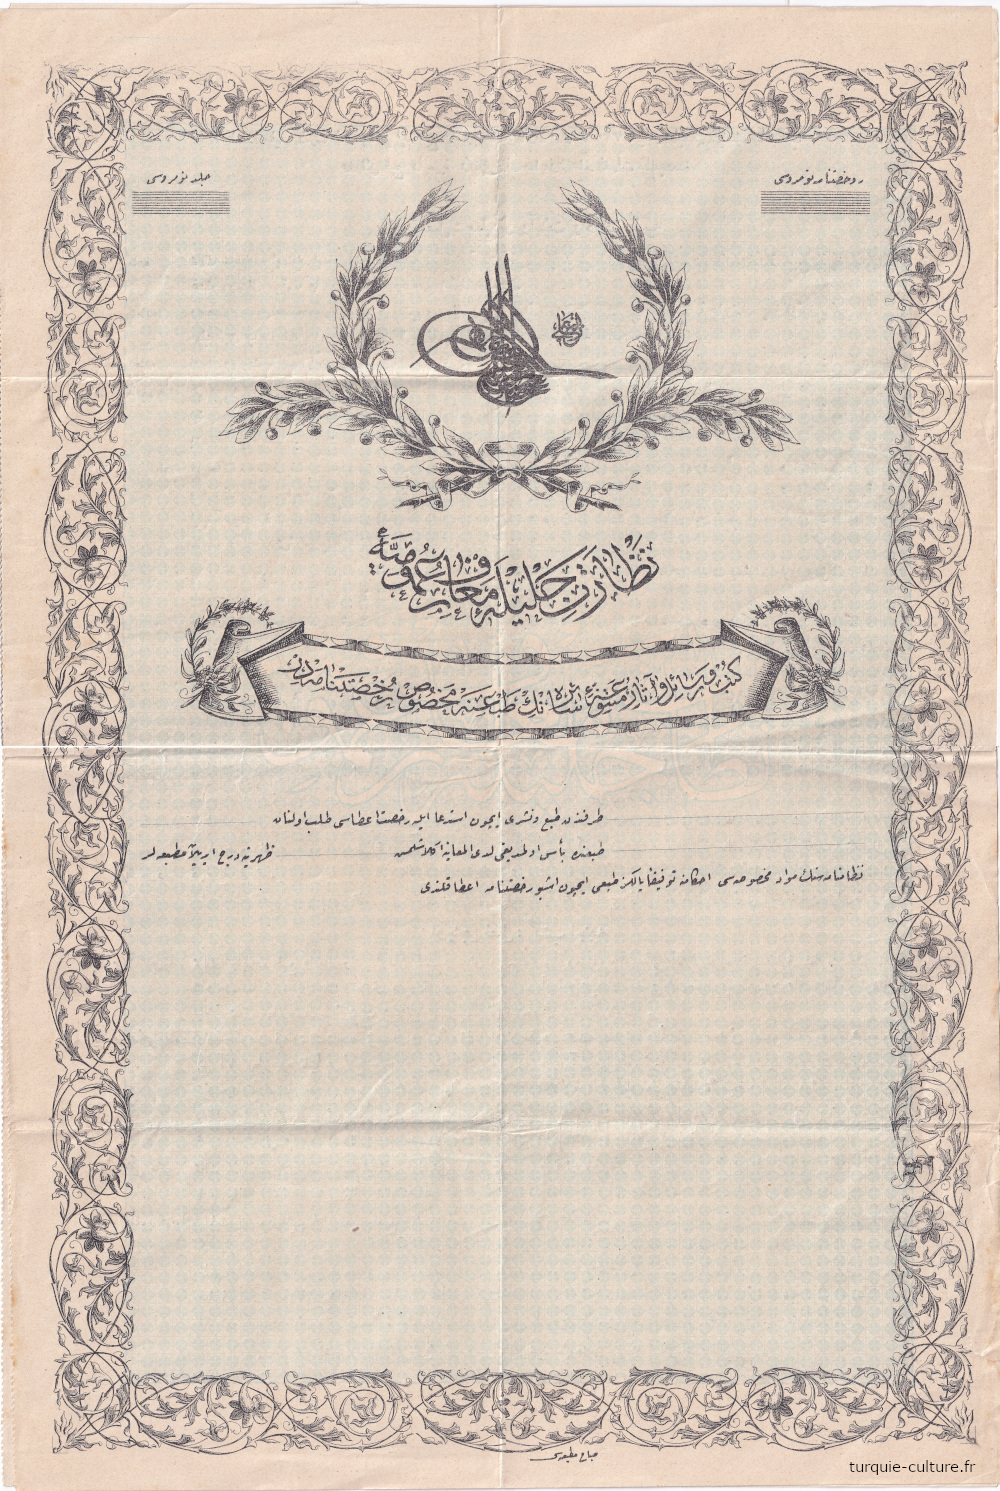 رخصتنامه نومروسی
جلد نومروسی
نظارت جلیلهٔ معارف عمومیه
كتب و رسائل و آثار متنوعهٔ سائره نك طبعنه مخصوص رخصتنامه در
طرفندن طبع ونشری ایچون استدعا ایله رخصت اعطاسی طلب اولنان
طبعنده بأس اولمدیغی لدی المعاینه اكلاشلمش ظهرینه درج ایدیلان مطبعه لر
نظامنامه سنك مواد مخصوصه سی احكامنه توفیقا یالكز طبعی ایچون اشبو رخصتنامه اعطا قلندی
صباح مطبعه سی
turquie-culture.fr